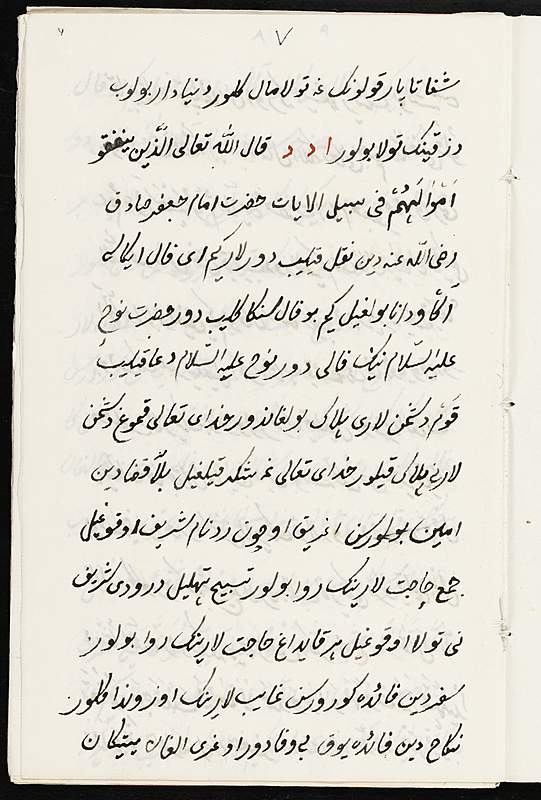 ٧
شفا تاپار قولونک غه تولا مال کلور دنیادار بولوب
رزقینک تولا بولور ا د د قال الله تعالی الّذین ینفقو
اَمْوَالَهُمْ فی سبیل الایات حضرت امام جعفر صادق
رضی الله عنه دین نقل قیلیب دورلار کیم ای فال ایکاسی
اکاه و دانا بولغیل کیم بو فال سنکا کلیب دور حضرت نوح
علیه السّلام نینک فالی دور نوح علیه السّلام دعا قیلیب
قوم دشمن لاری هلاک بولغاندور خدای تعالی قموغ دشمن
لارنی هلاک قیلور خدای تعالی غه شکر قیلغیل بلا قضادین
امین بولورسن اغریق اوچون رد نام شریف اوقوغیل
جمع حاجت لارینک روا بولور تسبیح تهلیل درودی شریف
نی تولا اوقوغیل هر قایداغ حاجت لارینک روا بولور
سفردین فائده کورورسن غایب لارینک اوزوندا کلور
نکاح دین فائده یوق بی وفادور اوغری الغان ییتیکان